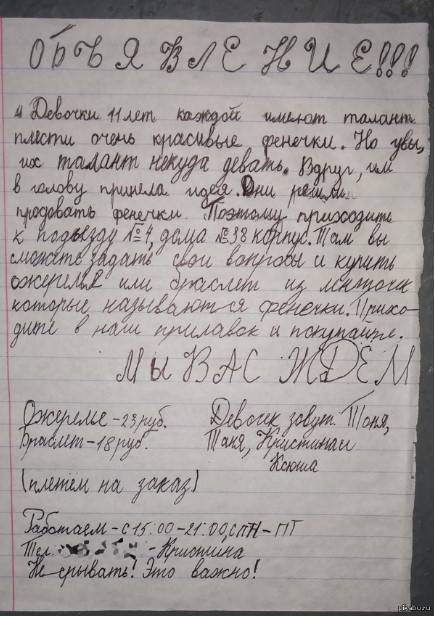 ОБЪЯВЛЕНИЕ!!!
4 Девочки 11 лет каждой имеют талант
плести очень красивые фенечки. Но увы,
их талант некуда девать. Вдруг, им
в голову пришла идея. Они решили
продовать фенечки. Поэтому приходите
к подъезду №4, дома №38 корпус. Там вы
сможете задать свои вопросы и купить
ожерелье или браслет из ниточек
которые называются фенечки. Прихо-
дите в наш прилавок и покупайте.
МЫ ВАС ЖДЁМ
Ожерелье - 23 руб. Девочек зовут: Тоня,
Браслет - 18 руб. Таня, Кристина и
Ксюша
(плетём на заказ)
Работаем - с 15.00 - 21.00, с ПН - ПТ
Тел. - Кристина
Не срывать! Это важно!
pikabu.ru